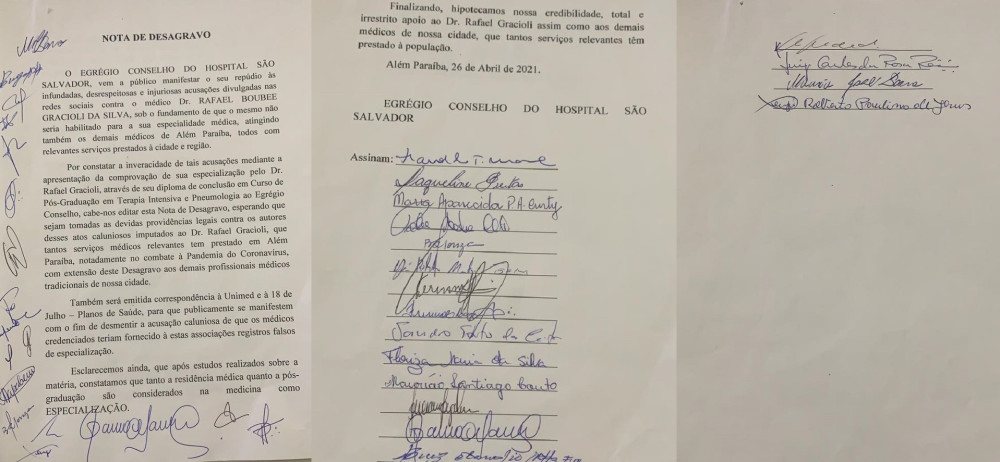 NOTA DE DESAGRAVO
O EGRÉGIO CONSELHO DO HOSPITAL SÃO
SALVADOR, vem a público manifestar o seu repúdio às
infundadas, desrespeitosas e injuriosas acusações divulgadas nas
redes sociais contra o médico Dr. RAFAEL BOUBEE
GRACIOLI DA SILVA, sob o fundamento de que o mesmo não
seria habilitado para a sua especialidade médica, atingindo
também os demais médicos de Além Paraíba, todos com
relevantes serviços prestados à cidade e região.
Por constatar a inveracidade de tais acusações mediante a
apresentação da comprovação de sua especialização pelo Dr.
Rafael Gracioli, através de seu diploma de conclusão em Curso de
Pós-Graduação em Terapia Intensiva e Pneumologia ao Egrégio
Conselho, cabe-nos editar esta Nota de Desagravo, esperando que
sejam tomadas as devidas providências legais contra os autores
desses atos caluniosos imputados ao Dr. Rafael Gracioli, que
tantos serviços médicos relevantes tem prestado em Além
Paraíba, notadamente no combate à Pandemia do Coronavírus,
com extensão deste Desagravo aos demais profissionais médicos
tradicionais de nossa cidade.
Também será emitida correspondência à Unimed e à 18 de
Julho – Planos de Saúde, para que publicamente se manifestem
com o fim de desmentir a acusação caluniosa de que os médicos
credenciados teriam fornecido à estas associações registros falsos
de especialização.
Esclarecemos ainda, que após estudos realizados sobre a
matéria, constatamos que tanto a residência médica quanto a pós-
graduação são considerados na medicina como
ESPECIALIZAÇÃO.
Finalizando, hipotecamos nossa credibilidade, total e
irrestrito apoio ao Dr. Rafael Gracioli assim como aos demais
médicos de nossa cidade, que tantos serviços relevantes têm
prestado à população.
Além Paraíba, 26 de Abril de 2021.
EGRÉGIO CONSELHO DO HOSPITAL SÃO
SALVADOR
Assinam:
Jaqueline
Maria Aparecida P.A.
da Silva
Santiago Couto
Roberto Paulino de Jesus